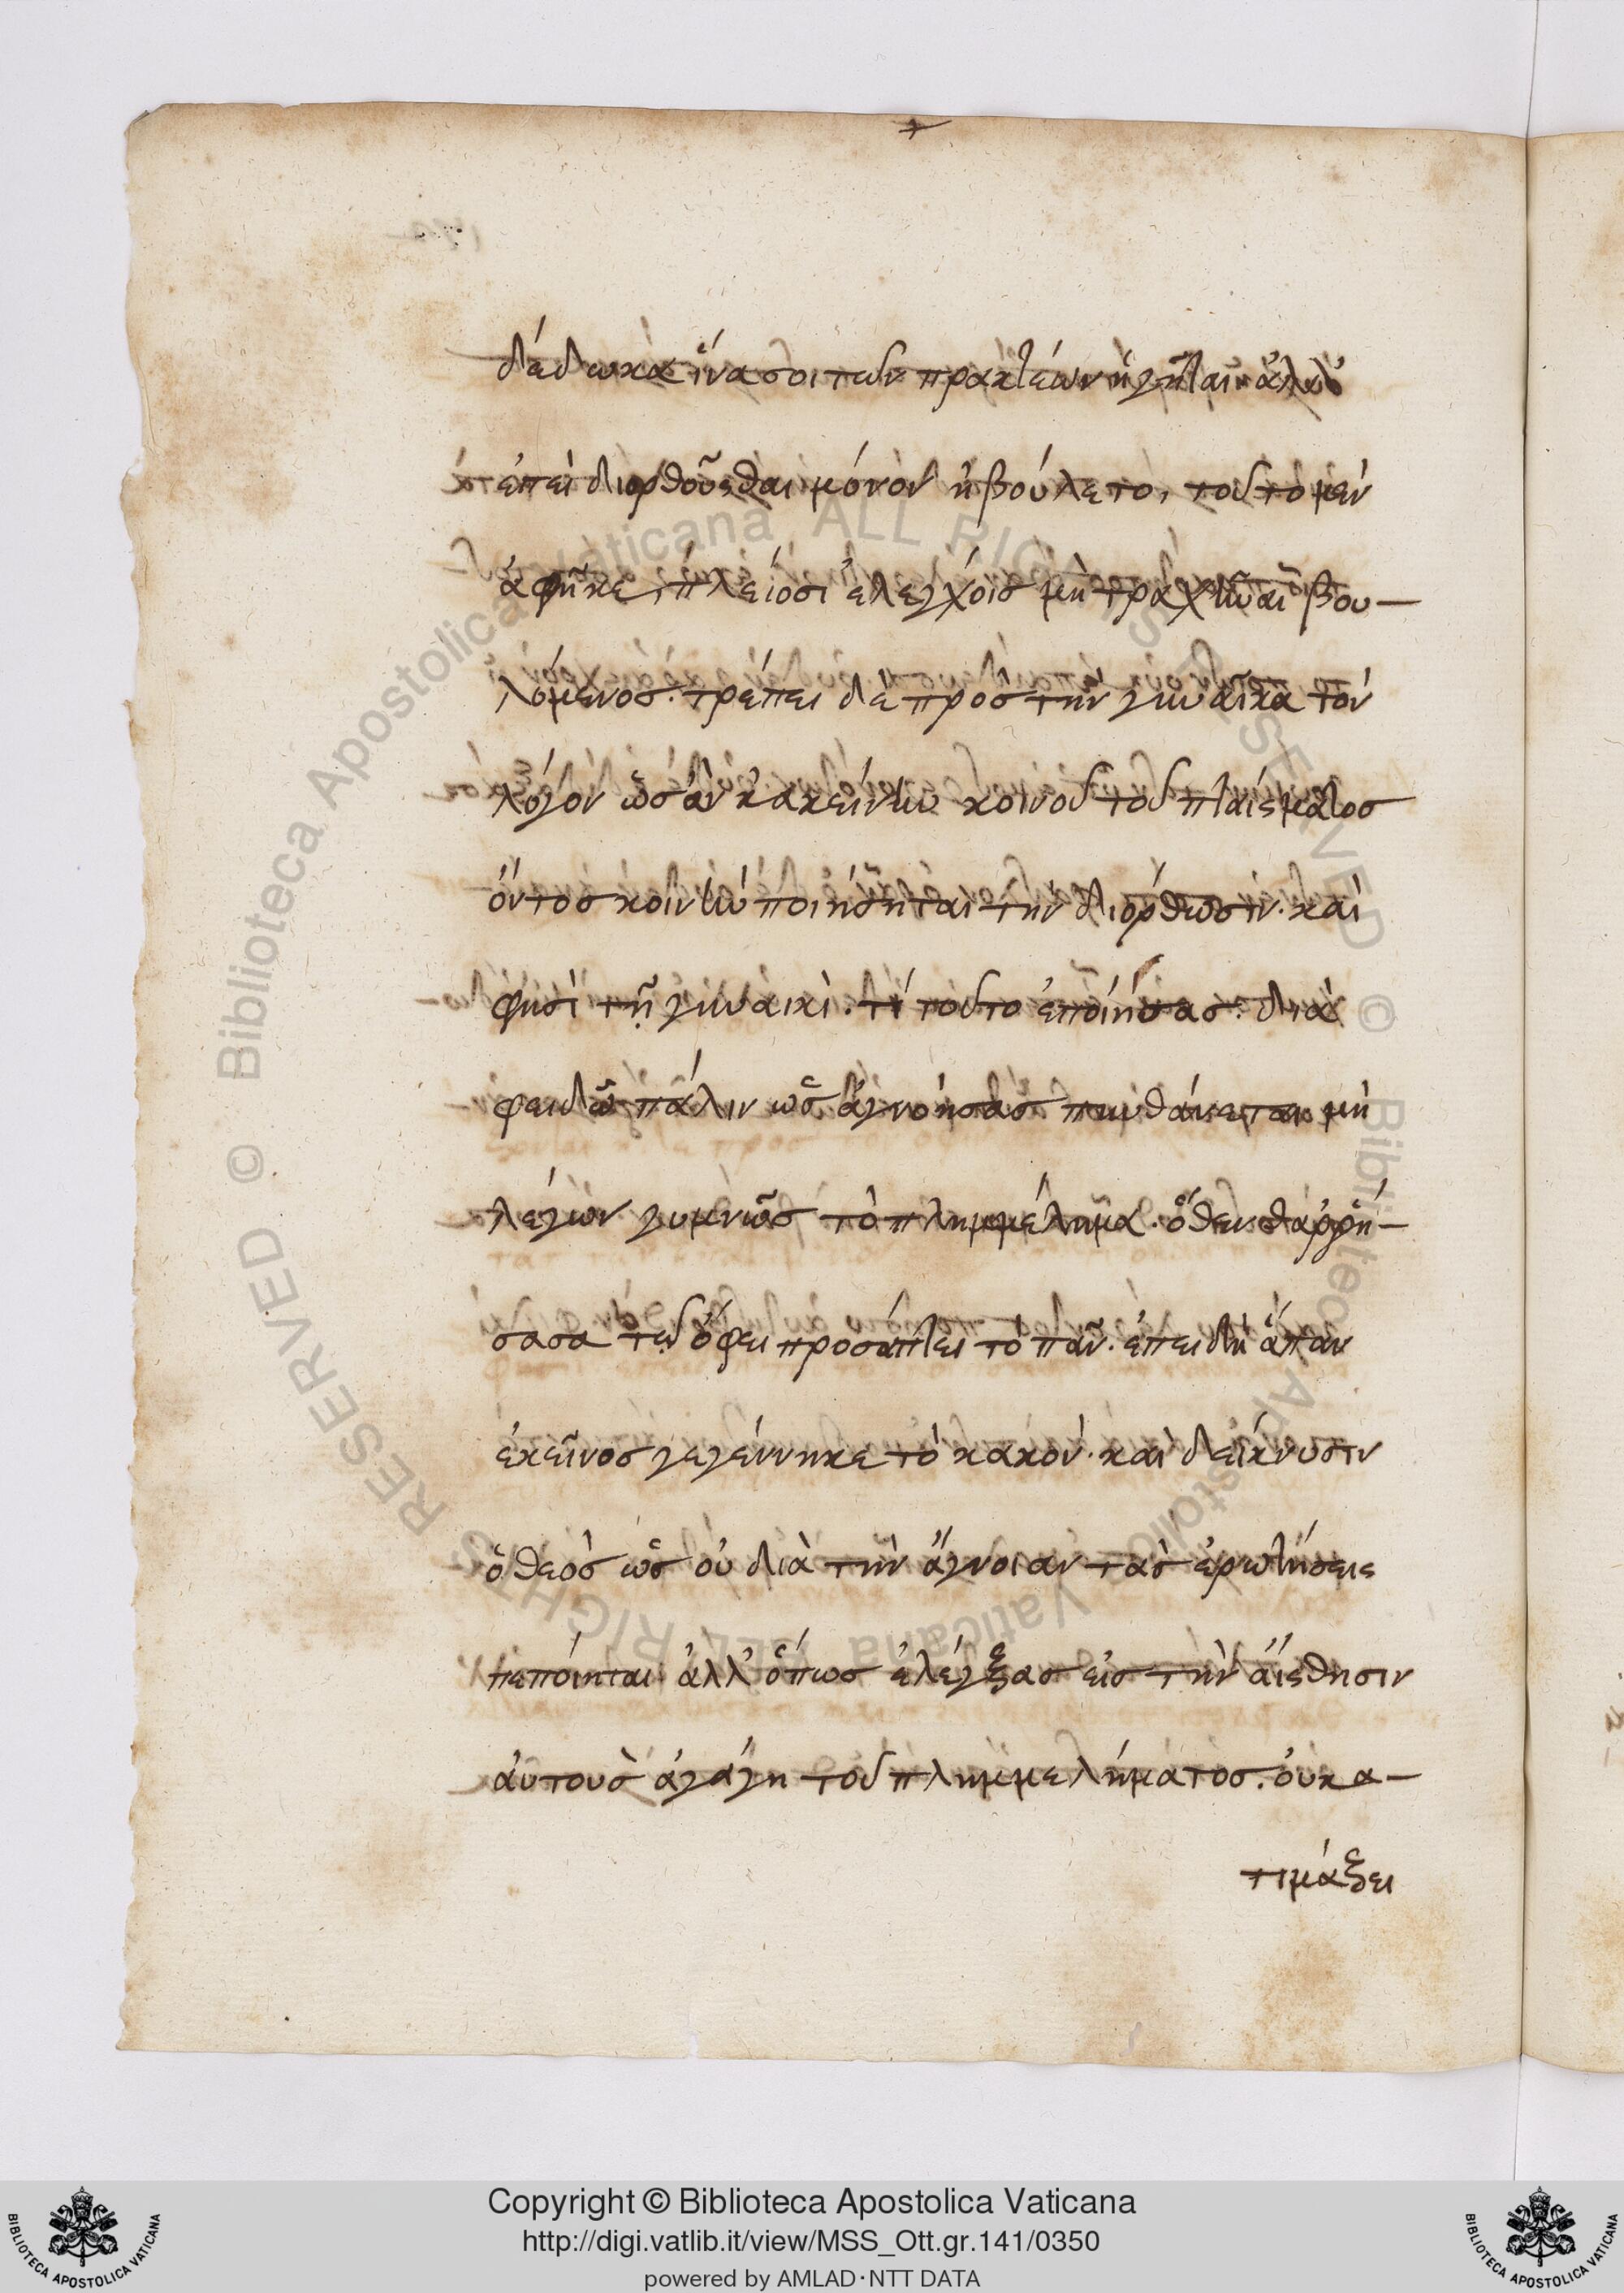 δέδωκα ἵνα σοι τῶν πρακτέων ἡγῆται. ἀλλ'
ἐπεὶ διορθοῦσθαι μόνον ἠβούλετο, τοῦτο μὲν
ἀφῆκε, πλείοσι ἐλέγχοις μὴ τραχῦναι βου-
λόμενος. τρέπει δὲ πρὸς τὴν γυναῖκα τὸν
λόγον ὡς ἂν κἀκείνην κοινοῦ τοῦ πταίσματος
ὄντος κοινὴν ποιήσηται τὴν διόρθωσιν. καὶ
φησὶ τῇ γυναικὶ. τί τοῦτο ἐποίησας. διὰ
φειδῶ πάλιν ὡς ἀγνοήσας πυνθάνεται μὴ
λέγων γυμνῶς τὸ πλημμέλημα. ὅθεν θαῤῥή-
σασα τῷ ὄφει προσάπτει τὸ πᾶν. ἐπειδὴ ἅπαν
ἐκεῖνος γεγέννηκε τὸ κακόν. καὶ δείκνυσιν
ὁ θεὸς ὡς οὐ διὰ τὴν ἄγνοιαν τὰς ἐρωτήσεις
πεποίηται ἀλλ' ὅπως ἐλέγξας εἰς τὴν αἴσθησιν
αὐτοὺς ἀγάγη τοῦ πλημμελήματος. οὐκ ἀ-
τιμάξει
Copyright © Biblioteca Apostolica Vaticana
http://digi.vatlib.it/view/MSS_Ott.gr.141/0350
powered by AMLAD·NTT DATA
BIBLIOTECA APOSTOLICA VATICANA
BIBLIOTECA APOSTOLICA VATICANA
© Biblioteca Apostolica Vaticana ALL RIGHTS RESERVED
© Biblioteca Apostolica Vaticana ALL RIGHTS RESERVED